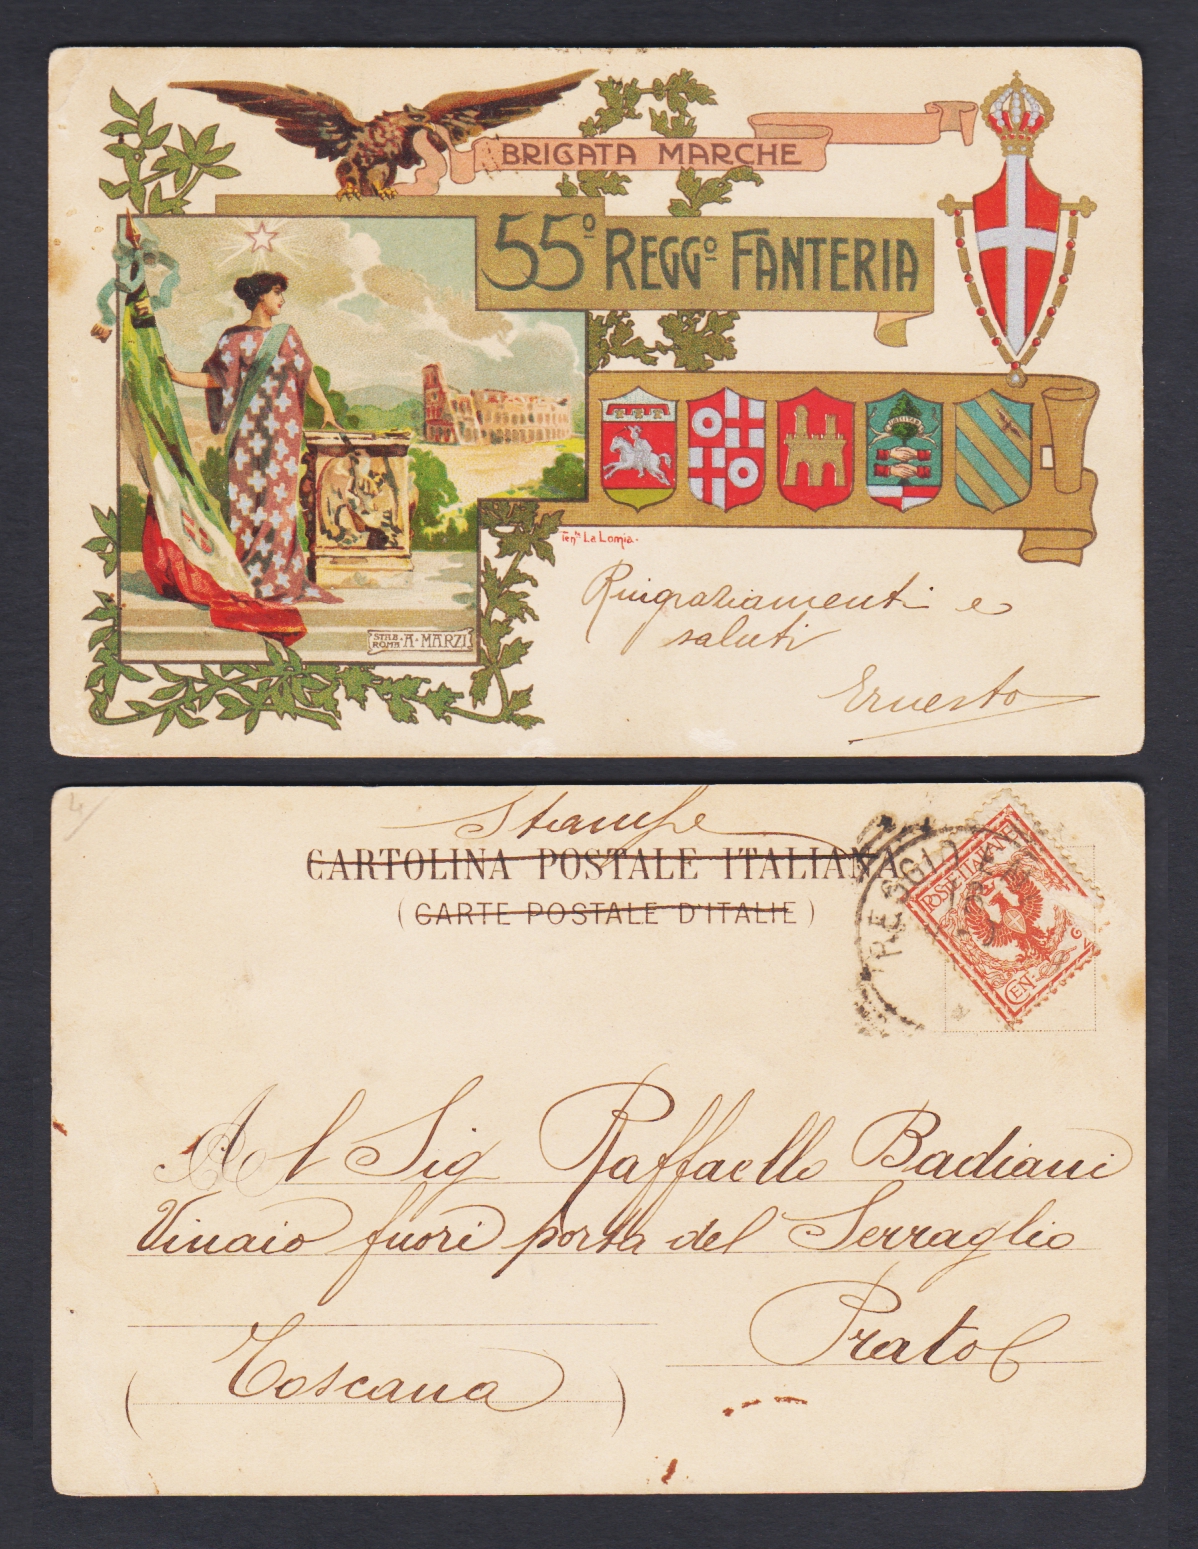 BRIGATA MARCHE
55º REGGº FANTERIA
Tente La Lomia.
STAB. A. MARZI
ROMA
Ringraziamenti e
saluti
Ernesto
4/
Stampe
CARTOLINA POSTALE ITALIANA
(CARTE POSTALE D'ITALIE)
REGGIO
POSTE ITALIANE
CEN. 2
Al Sig Raffaello Badiani
Vinaio fuori porta del Serraglio
Prato
(Toscana)